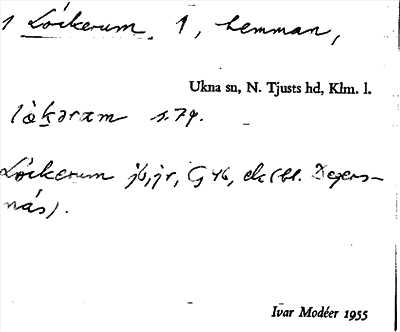 1 Löckerum. 1, hemman,
Ukna sn, N. Tjusts hd, Klm. l.
s. 79.
Löckerum jb, jr, G 46, ek (bl. Degers-
näs).
Ivar Modéer 1955